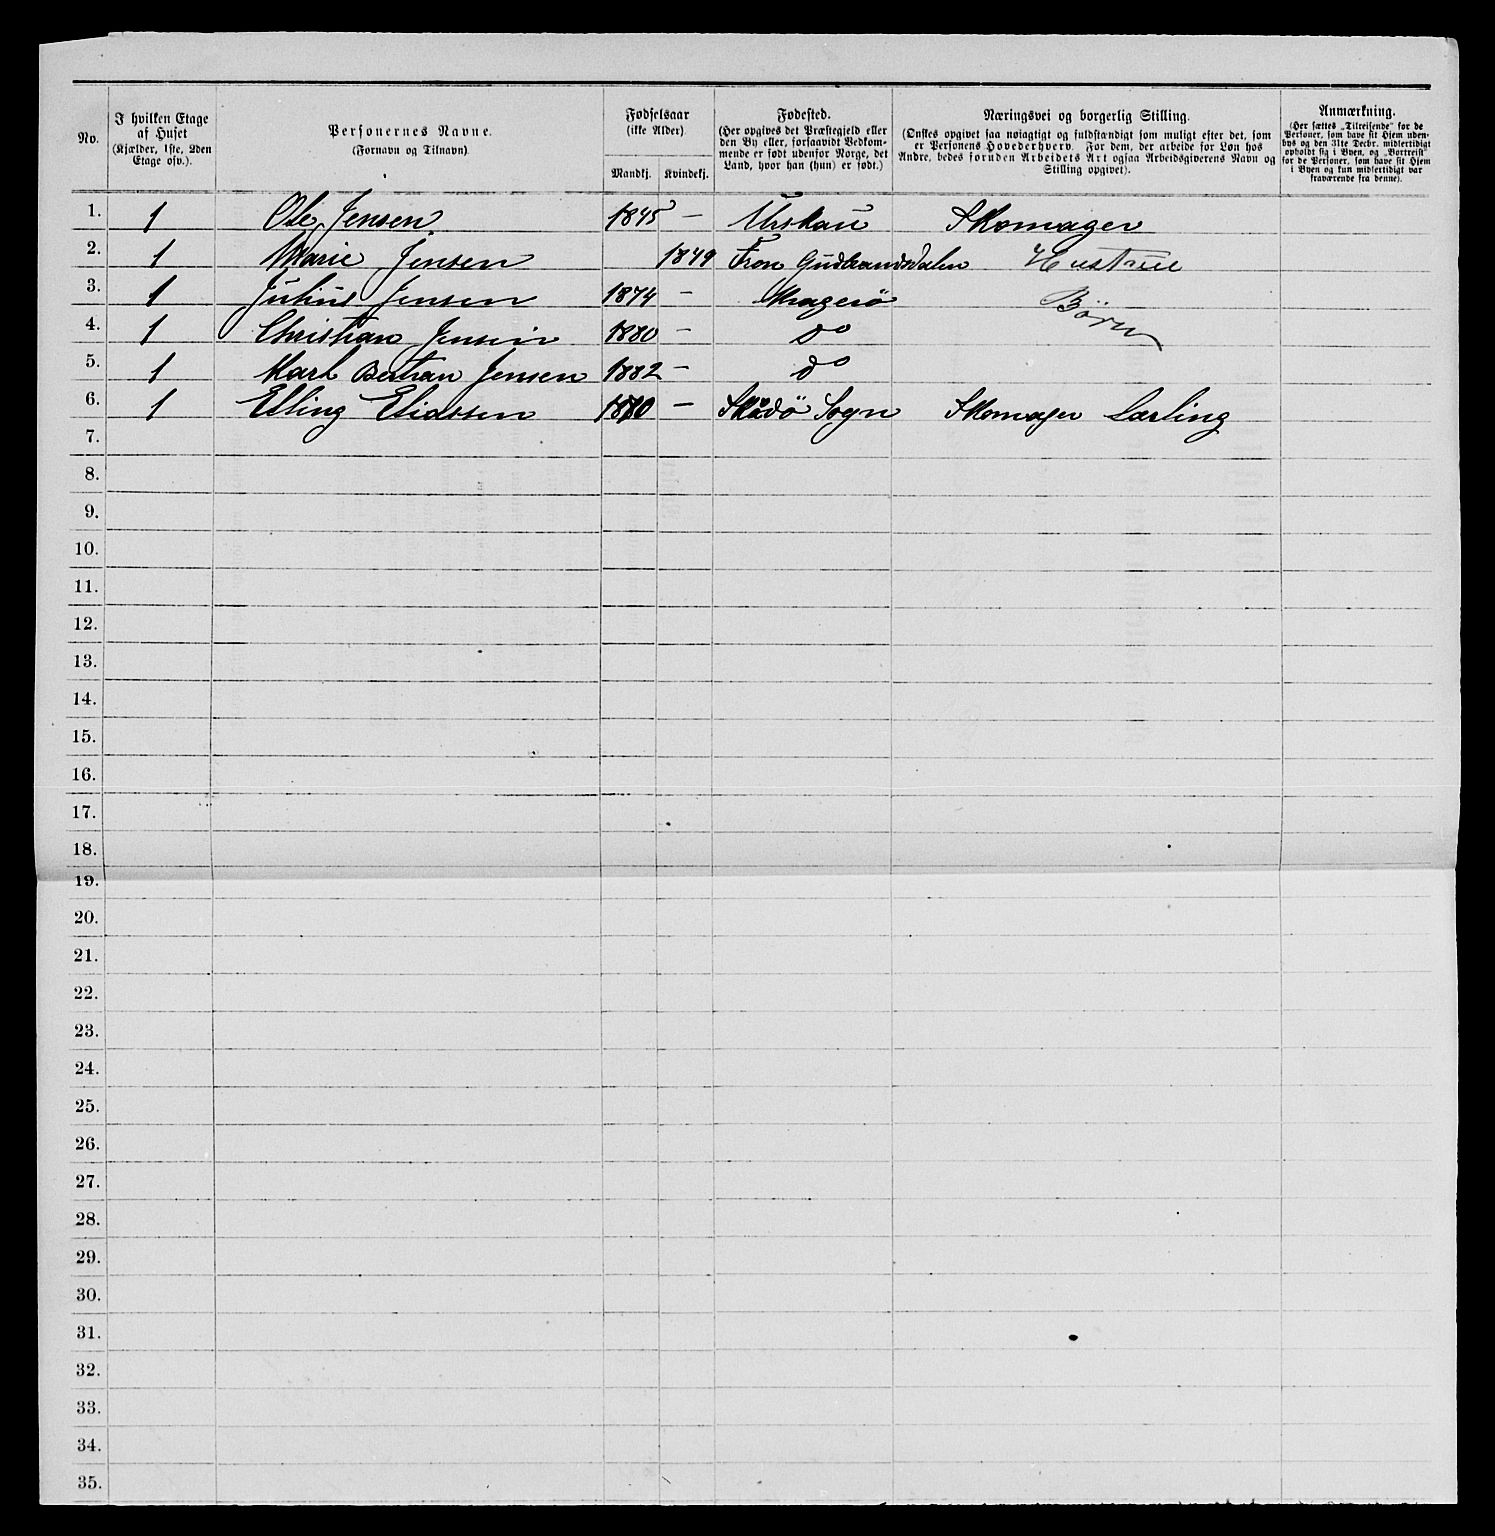 No.
I hvilken Etage
af Huset
(Kjælder, 1ste, 2den
Etage osv.).
Personernes Navne.
(Fornavn og Tilnavn).
Fødselsaar
(ikke Alder).
Mandkj. Kvindekj.
Fødested.
(Her opgives det Præstegjeld eller
den By eller, forsaavidt Vedkom-
mende er født udenfor Norge, det
Land, hvor han (hun) er født.)
Næringsvei og borgerlig Stilling.
(Ønskes opgivet saa nøiagtigt og fuldstændigt som muligt efter det, som
er Personens Hovederhverv. For dem, der arbeide for Løn hos
Andre, bedes foruden Arbeidets Art ogsaa Arbeidsgiverens Navn og
Stilling opgivet).
Anmærkning.
(Her sættes „Tilreisende“ for de
Personer, som have sit Hjem uden-
bys og den 31te Decbr. midlertidigt
opholdt sig i Byen, og „Bortreist“
for de Personer, som have sit Hjem
i Byen og kun midlertidigt var
fraværende fra denne).
1. 1 Ole Jensen. 1845 — Urskau Skomager
2. 1 Marie Jensen 1849 Fron Gudbrandsdalen Hustrue
3. 1 Julius Jensen 1874 — Kragerö Börn
4. 1 Christian Jensen 1880 — do
5. 1 Karl Bertran Jensen 1882 — do
6. 1 Elling Eliassen 1870 — Skådö Sogn Skomager Lærling
7.
8.
9.
10.
11.
12.
13.
14.
15.
16.
17.
18.
19.
20.
21.
22.
23.
24.
25.
26.
27.
28.
29.
30.
31.
32.
33.
34.
35.